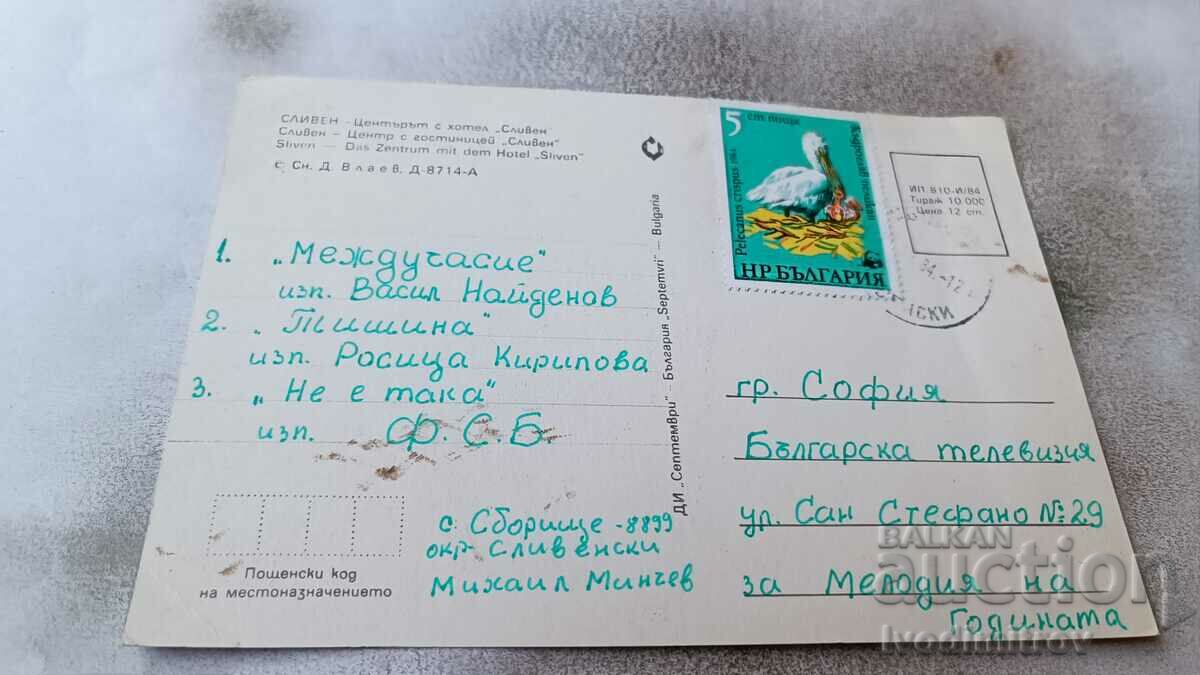 СЛИВЕН - Центърът с хотел „Сливен"
Сливен - Центр с гостиницей „Сливен"
Sliven - Das Zentrum mit dem Hotel „Sliven"
Сн. Д. Влаев, Д-8714-А
1. „Междучасие"
изп. Васил Найденов
2. „Тишина"
изп. Росица Кирилова
3. „Не е така"
изп. Ф.С.Б.
Пощенски код
на местоназначението
с. Сборище -8899
окр. Сливенски
Михаил Минчев
ДИ „Септември" - България „Septemvri" - Bulgaria
5 ст
поща
Pelecanus crispus 1984
Къдроглав пеликан
НР БЪЛГАРИЯ
ИП 810-И/84
Тираж 10 000
Цена 12 ст.
гр. София
Българска телевизия
ул. Сан Стефано №29
за Мелодия на
Годината
BALKAN
auction
Ivodimitrov